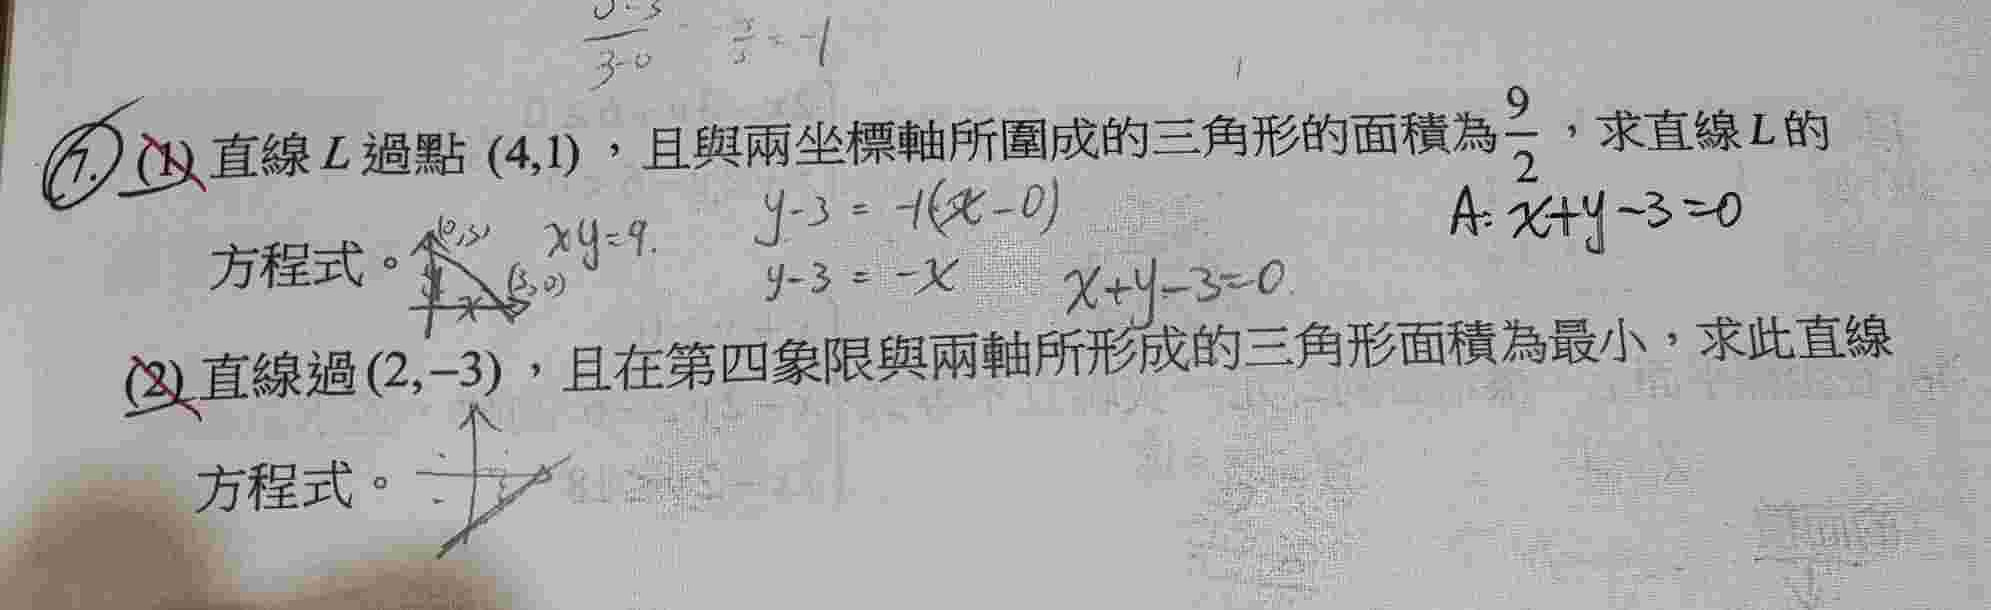 3-0 = -1
7. (1) 直線 L 過點 (4,1)，且與兩坐標軸所圍成的三角形的面積為 9/2，求直線 L 的
y-3 = -1(x-0) A: x+y-3=0
方程式。 (0,3) xy=9. (3,0)
y-3 = -x x+y-3=0.
(2) 直線過 (2,−3)，且在第四象限與兩軸所形成的三角形面積為最小，求此直線
方程式。